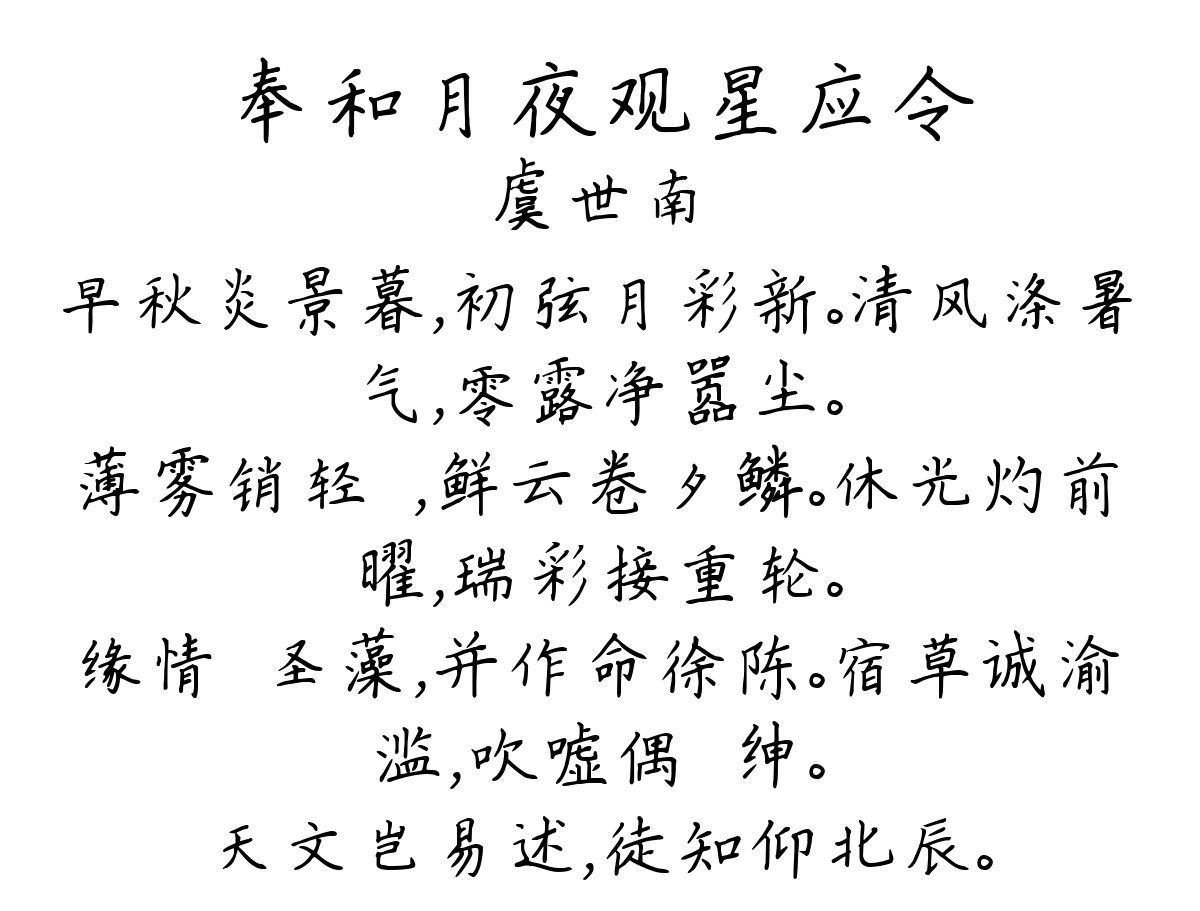 奉和月夜观星应令
虞世南
早秋炎景暮,初弦月彩新。清风涤暑
气,零露净嚣尘。
薄雾销轻 ,鲜云卷夕鳞。休光灼前
曜,瑞彩接重轮。
缘情 圣藻,并作命徐陈。宿草诚渝
滥,吹嘘偶 绅。
天文岂易述,徒知仰北辰。